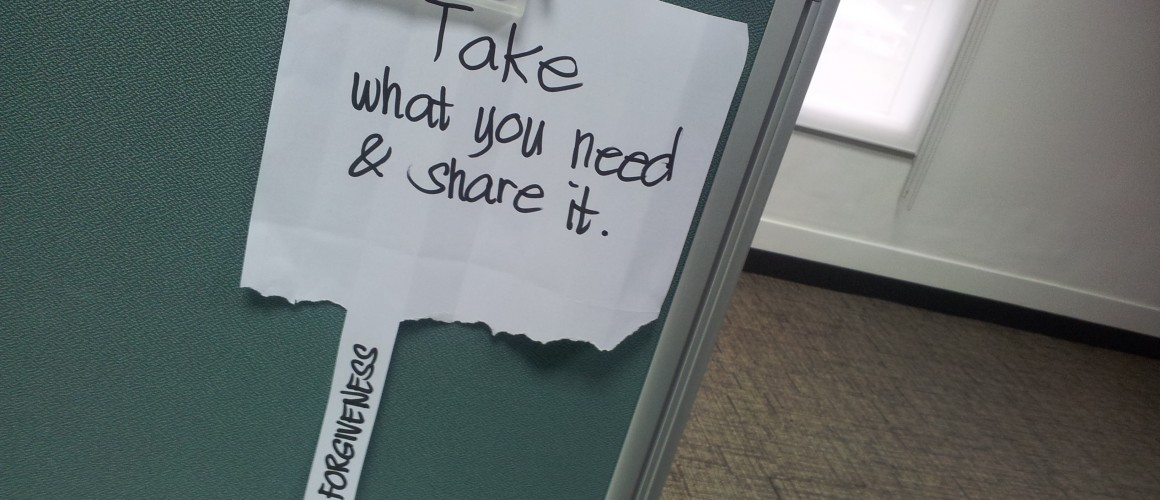 Take
what you need
& share it.
FORGIVENESS